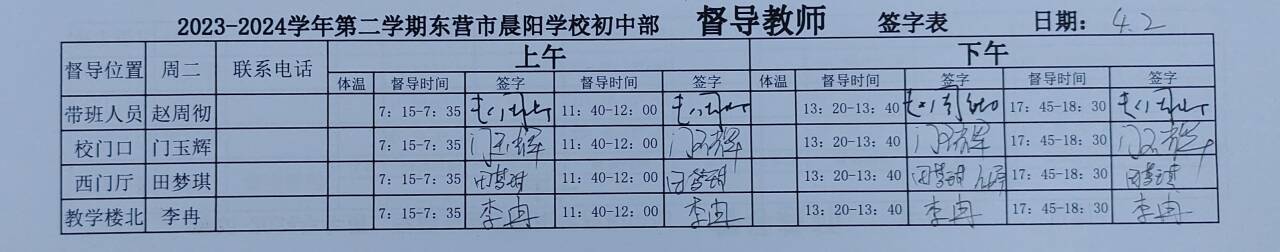 2023-2024学年第二学期东营市晨阳学校初中部 督导教师 签字表 日期：4.2
督导位置 周二 联系电话 上午 下午
体温 督导时间 签字 督导时间 签字 体温 督导时间 签字 督导时间 签字
带班人员 赵周彻 7：15-7：35 赵周彻 11：40-12：00 赵周彻 13：20-13：40 赵周彻 17：45-18：30 赵周彻
校门口 门玉辉 7：15-7：35 门玉辉 11：40-12：00 门玉辉 13：20-13：40 门玉辉 17：45-18：30 门玉辉
西门厅 田梦琪 7：15-7：35 田梦琪 11：40-12：00 田梦琪 13：20-13：40 田梦琪 17：45-18：30 田梦琪
教学楼北 李冉 7：15-7：35 李冉 11：40-12：00 李冉 13：20-13：40 李冉 17：45-18：30 李冉